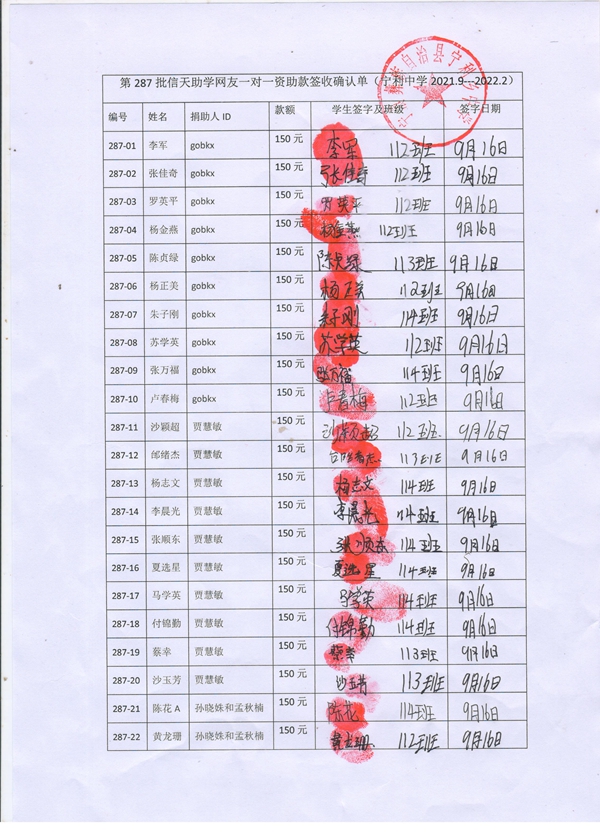 第 287 批信天助学网友一对一资助款签收确认单（宁科中学 2021.9---2022.2）
编号 姓名 捐助人 ID 款额 学生签字及班级 签字日期
287-01 李军 gobkx 150 元 李军 112班 9月16日
287-02 张佳奇 gobkx 150 元 张佳奇 112班 9月16日
287-03 罗英平 gobkx 150 元 罗英平 112班 9月16日
287-04 杨金燕 gobkx 150 元 杨金燕 112班 9月16日
287-05 陈贞绿 gobkx 150 元 陈贞绿 113班 9月16日
287-06 杨正美 gobkx 150 元 杨正美 112班 9月16日
287-07 朱子刚 gobkx 150 元 朱子刚 114班 9月16日
287-08 苏学英 gobkx 150 元 苏学英 112班 9月16日
287-09 张万福 gobkx 150 元 张万福 114班 9月16日
287-10 卢春梅 gobkx 150 元 卢春梅 112班 9月16日
287-11 沙颖超 贾慧敏 150 元 沙颖超 112班 9月16日
287-12 邰绪杰 贾慧敏 150 元 113班 9月16日
287-13 杨志文 贾慧敏 150 元 杨志文 114班 9月16日
287-14 李晨光 贾慧敏 150 元 李晨光 114班 9月16日
287-15 张顺东 贾慧敏 150 元 张顺东 114班 9月16日
287-16 夏选星 贾慧敏 150 元 夏选星 114班 9月16日
287-17 马学英 贾慧敏 150 元 马学英 114班 9月16日
287-18 付锦勤 贾慧敏 150 元 付锦勤 114班 9月16日
287-19 蔡幸 贾慧敏 150 元 蔡幸 113班 9月16日
287-20 沙玉芳 贾慧敏 150 元 沙玉芳 113班 9月16日
287-21 陈花 A 孙晓姝和孟秋楠 150 元 陈花 114班 9月16日
287-22 黄龙珊 孙晓姝和孟秋楠 150 元 黄龙珊 112班 9月16日